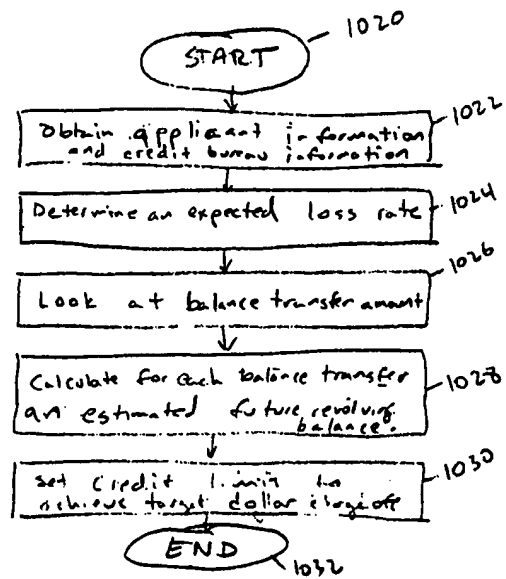 1020
START
1022
Obtain applicant information
and credit bureau information
1024
Determine an expected loss rate
1026
Look at balance transfer amount
1028
Calculate for each balance transfer
an estimated future revolving
balance.
1030
Set credit limit to
achieve target dollar
END
1032